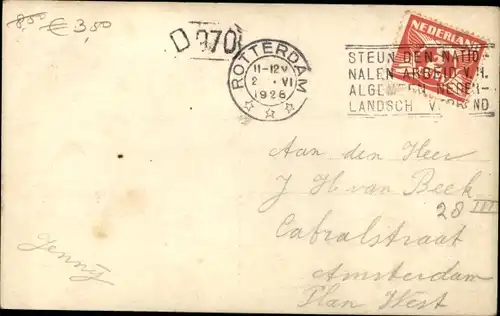 8,50 € 3,50
D 970
ROTTERDAM
11-12 V
2 · VI
1928
NEDERLAND
STEUN DEN NATIO-
NALEN ARBEID V.H.
ALGEMEEN NEDER-
LANDSCH VERBOND
Aan den Heer
J H van Beek
28 III
Cabralstraat
Amsterdam
Plan West
Jenny